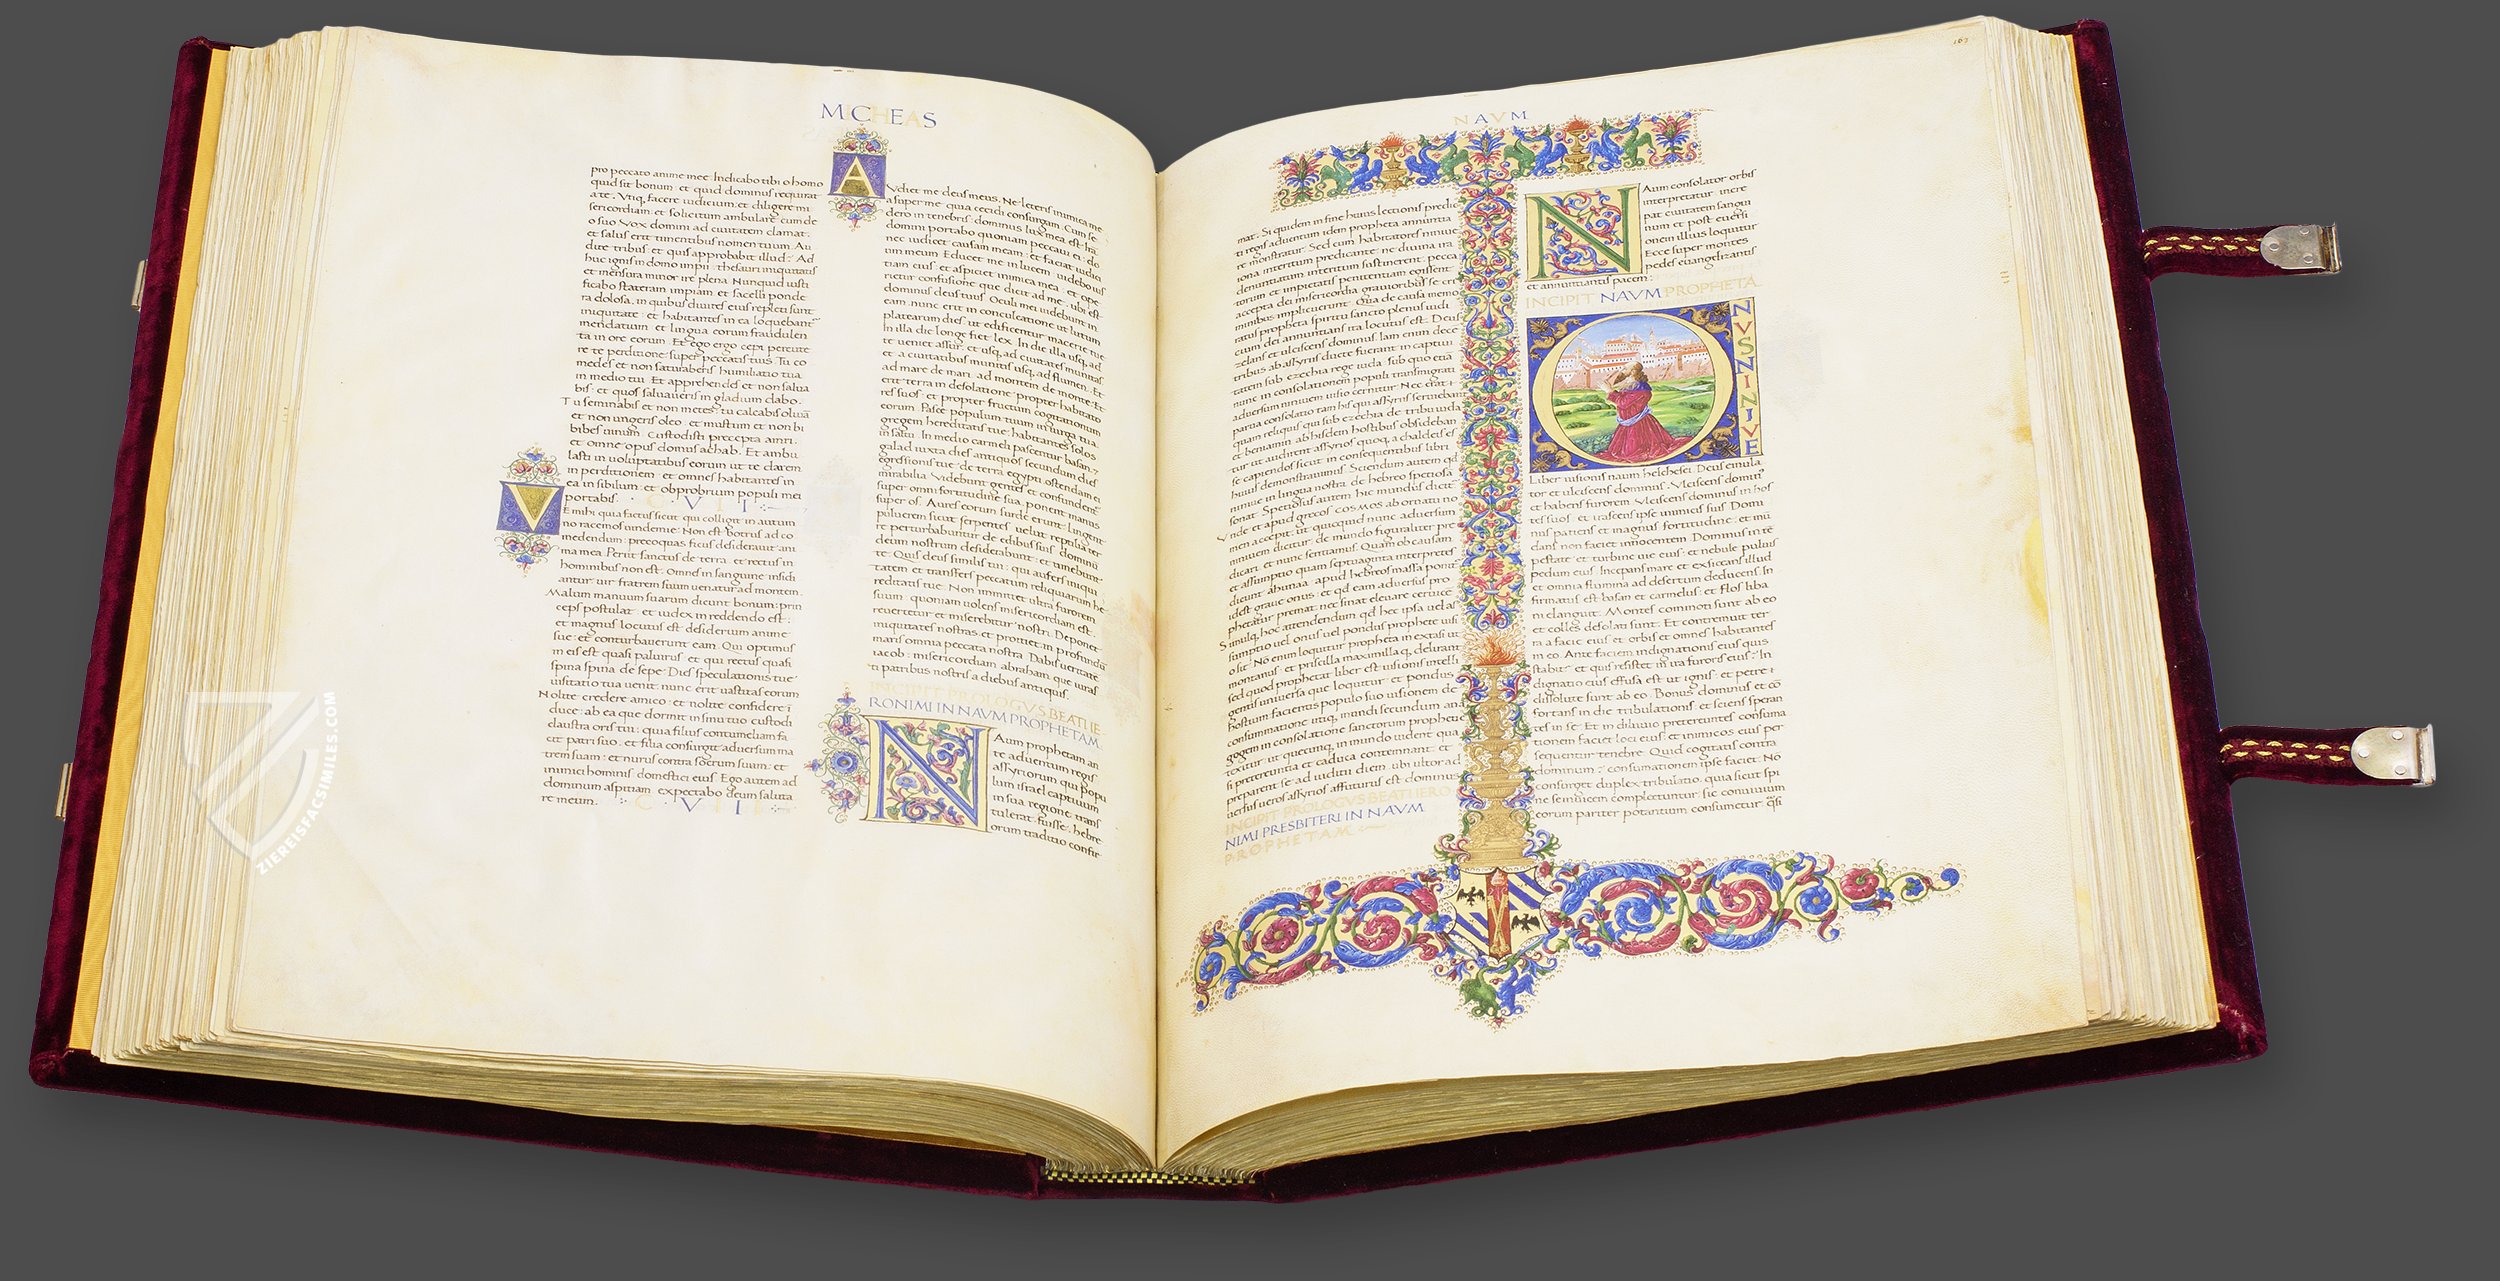 MICHEAS
pro peccato anime mee. Indicabo tibi o homo
quid sit bonum: et quid dominus requirat
a te. Vtiq, facere iudicium: et diligere mi
sericordiam: et solicitum ambulare cum de
o suo Vox domini ad ciuitatem clamat:
et salus erit timentibus nomen tuum. Au
dite tribus et quis approbabit illud? Ad
huc ignis in domo impii: thesauri iniquitatis
et mensura minor ire plena Nunquid iusti
ficabo stateram impiam et sacelli ponde
ra dolosa: in quibus diuites eius repleti sunt
iniquitate: et habitantes in ea loquebant
mendatium: et lingua eorum fraudulen
ta in ore eorum. Et ego ergo cepi percute
re te perditione super peccatis tuis. Tu co
medes et non saturaberis humiliatio tua
in medio tui. Et apprehendes et non salua
bis: et quos saluaueris in gladium dabo.
Tu seminabis et non metes: tu calcabis oliuā
et non ungeris oleo: et mustum et non bi
bibes uinum. Custodisti precepta amri:
et omne opus domus achab. Et ambu
lasti in uoluptatibus eorum ut te darem
in perditionem: et omnes habitantes in
ea in sibilum: et obprobrium populi mei
portabis. C. VII
VE mihi quia factus sicut qui colligit in autum
no racemos uindemie: Non est botrus ad co
medendum: precoquas ficus desiderauit ani
ma mea. Periit sanctus de terra: et rectus in
hominibus non est. Omnes in sanguine insidi
antur: uir fratrem suum uenatur ad mortem.
Malum manuum suarum dicunt bonum: prin
ceps postulat: et iudex in reddendo est:
et magnus locutus est desiderium anime
sue: et conturbauerunt eam. Qui optimus
in eis est quasi paliurus: et qui rectus quasi
spina spina de sepe. Dies speculationis tue
uisitatio tua uenit: nunc erit uastitas eorum
Nolite credere amico: et nolite confidere ī
duce: ab ea que dormit in sinu tuo custodi
claustra oris tui: quia filius contumeliam fa
cit patri suo: et filia consurgit aduersum ma
trem suam: et nurus contra socrum suam: et
inimici hominis domestici eius. Ego autem ad
dominum aspitiam: expectabo deum saluta
re meum. C. VII
AVdiet me deus meus. Ne leteris inimica me
a super me: quia cecidi consurgam. Cum se
dero in tenebris: dominus lux mea est. Irā
domini portabo quoniam peccaui ei: do
nec iudicet causam meam: et faciat iudici
um meum Educet me in lucem: uidebo ius
titiam eius: et aspiciet inimica mea: et ope
rietur confusione que dicit ad me: ubi est
dominus deus tuus? Oculi mei uidebunt in
eam: nunc erit in conculcatione ut lutum
platearum dies: ut edificentur macerie tue
In illa die longe fiet lex. In die illa usq, ad
te ueniet assur: et usq, ad ciuitates munitas
et a ciuitatibus munitis usq, ad flumen. Et
ad mare de mari: ad montem de monte. Et
erit terra in desolatione propter habitato
res suos: et propter fructum cogitationum
eorum. Pasce populum tuum in uirga tua:
gregem hereditatis tue: habitantes solos
in saltu. In medio carmeli pascentur basan: 7
galad iuxta dies antiquos secundum dies
egressionis tue de terra egypti ostendam ei
mirabilia Videbunt gentes et confundent
super omni fortitudine sua: ponent manus
super os. Aures eorum surde erunt: lingent
puluerem sicut serpentes: uelut reptilia ter
re perturbabuntur de edibus suis dominū
deum nostrum desiderabunt: et timebunt
te. Quis deus similis tui: qui aufers iniqui
tatem et transfers peccatum reliquiarum he
reditatis tue. Non immittet ultra furorem
suum: quoniam uolens misericordiam est.
reuertetur et miserebitur nostri. Deponet
iniquitates nostras: et proiitiet in profundū
maris omnia peccata nostra Dabis ueritatē
iacob: misericordiam abraham: que iuras
ti patribus nostris a diebus antiquis.
INCIPIT PROLOGVS BEATI IE
RONIMI IN NAVM PROPHETAM.
NAum prophetam an
te aduentum regis
assyriorum qui popu
lum israel captiuum
in sua regione trans
tulerat fuisse: hebre
orum traditio confir
163
NAVM
mat. Si quidem in fine huius lectionis predic
ti regis aduentum idem propheta annuntia
re monstratur. Sed cum habitatores niniue
iona interitum predicante: ne diuina ira
denuntiatum interitum sustinerent: pecca
torum et impietatis penitentiam egissent:
accepta dei misericordia grauioribus se cri
minibus implicuerunt. Qua de causa memo
ratus propheta spiritu sancto plenus iudi
cium dei annuntians ita locutus est: Deus
zelans et ulciscens dominus. Iam enim decē
tribus ab assyriis ducte fuerant in captiui
tatem sub ezechia rege iuda: sub quo etiā
nunc in consolationem populi transmigrati
aduersum niniuem uisio cernitur Nec erat
parua consolatio tam his qui assyriis seruiebant
quam reliquis qui sub ezechia de tribu iuda
et beniamin ab hisdem hostibus obsideban
tur ut audirent assyrios quoq, a chaldeis es
se capiendos sicut in consequentibus libri
huius demonstrabimus. Sciendum autem qd
niniue in lingua nostra de hebreo spetiosa
sonat. Spetiosus autem hic mundus dicit
unde et apud grecos cosmos ab ornatu no
men accepit: ut quicquid nunc aduersum
niniuem dicitur de mundo figuraliter pre
dicari et nunc sentiamus. Quam ob causam
et assumptio quam septuaginta interpretes
dicunt: apud hebreos massa ponit
idest graue onus: et qd eam aduersus pro
phetatur premat: nec sinat eleuare ceruice
Simulq, hoc attendendum qd hec ipsa uel as
sumptio uel onus uel pondus prophete uisi
o sit. Nō enim loquitur propheta in extasi ut
montanus: et priscilla maximillaq, delirant
sed quod prophetat liber est uisionis intelli
gentis uniuersa que loquitur: et pondus
hostium facientis populo suo uisionem de
consummatione utiq, mundi secundum an
gogem in consolatione sanctorum prophete
texitur: ut quecunq, in mundo uident qua
si pretereuntia et caduca contemnant: et
preparent se ad iuditii diem: ubi ultor ad
uersus ueros assyrios affuturus est dominus
INCIPIT PROLOGVS BEATI IERO
NIMI PRESBITERI IN NAVM
PROPHETAM
NAum consolator orbis
interpretatur: incre
pat ciuitatem sangui
num et post euersi
onem illius loquitur
Ecce super montes
pedes euangelizantis
et annuntiantis pacem:
INCIPIT NAVM PROPHETA.
ONVS NINIVE
Liber uisionis naum helchesei. Deus emula
tor et ulciscens dominus. Vlciscens dominus
et habens furorem: Vlciscens dominus in hos
tes suos: et irascens ipse inimicis suis Domi
nus patiens et magnus fortitudine: et mū
dans non faciet innocentem. Dominus in tē
pestate et turbine uie eius: et nebule puluis
pedum eius. Increpans mare et exsiccans illud
et omnia flumina ad desertum deducens. In
firmatus est basan et carmelus: et flos liba
ni elanguit. Montes commoti sunt ab eo
et colles desolati sunt. Et contremuit ter
ra a facie eius et orbis et omnes habitantes
in eo. Ante faciem indignationis eius quis
stabit: et quis resistet in ira furoris eius? In
dignatio eius effusa est ut ignis: et petre
dissolute sunt ab eo. Bonus dominus et cō
fortans in die tribulationis: et sciens speran
tes in se: Et in diluuio pretereuntes consuma
tionem faciet loci eius: et inimicos eius per
sequentur tenebre. Quid cogitatis contra
dominum? consumationem ipse faciet: Nō
consurget duplex tribulatio: quia sicut spi
ne seinuicem complectuntur: sic conuiuium
eorum pariter potantium consumetur: qsi
ZIEREISFACSIMILES.COM